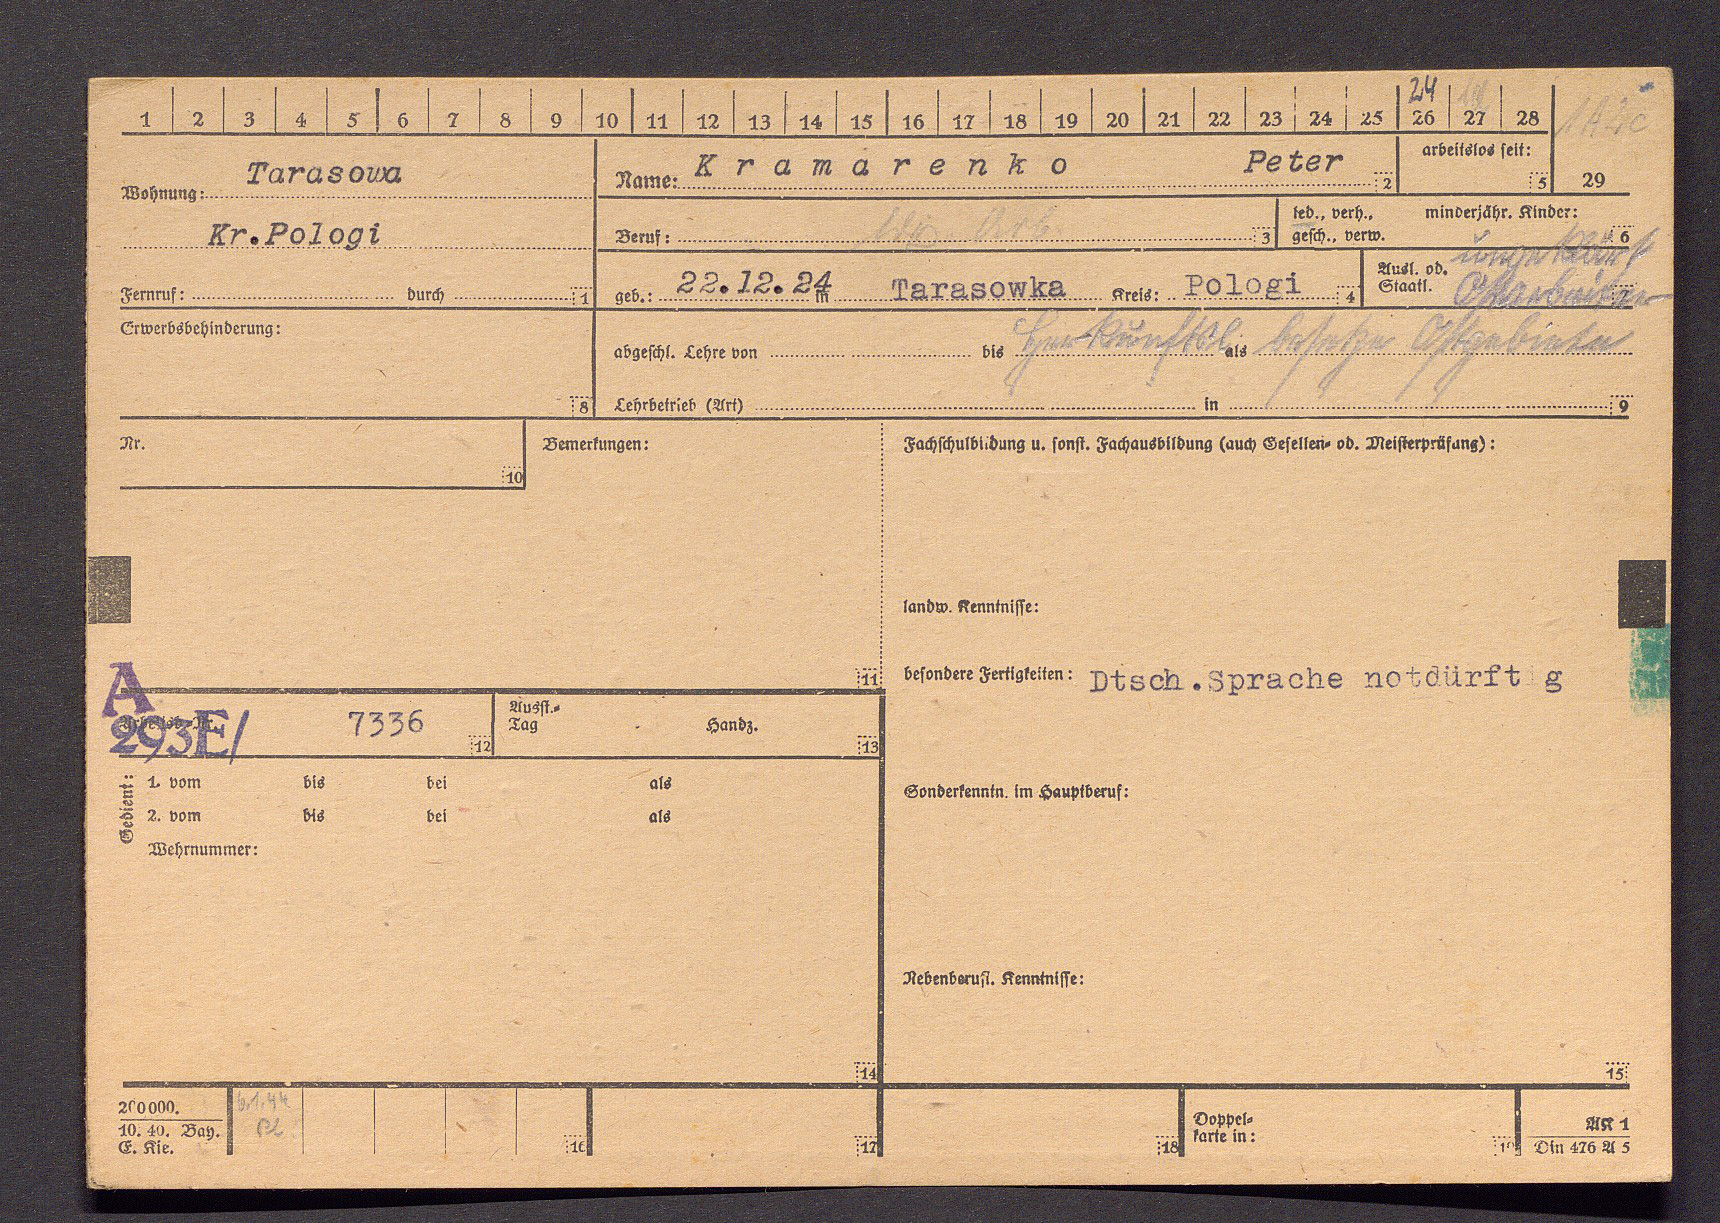 24
1 2 3 4 5 6 7 8 9 10 11 12 13 14 15 16 17 18 19 20 21 22 23 24 25 26 27 28
Wohnung: Tarasowa
Kr.Pologi
Fernruf: durch 1
Name: Kramarenko Peter 2
arbeitslos seit: 5
29
Beruf: 3
led., verh., gesch., verw.
minderjähr. Kinder: 6
geb.: 22.12.24 in Tarasowka Kreis: Pologi 4
Ausl. od. Staatl. ungeklärt
Ostarbeiter
Erwerbsbehinderung:
8
abgeschl. Lehre von bis als
Herkunftsl. besetzte Ostgebiete
Lehrbetrieb (Art) in 9
Nr.
10
Bemerkungen:
11
Fachschulbildung u. sonst. Fachausbildung (auch Gesellen- od. Meisterprüfung):
landw. Kenntnisse:
besondere Fertigkeiten: Dtsch.Sprache notdürft g
Sonderkenntn. im Hauptberuf:
Nebenberufl. Kenntnisse:
15
A
293E/
Arbeitsb.-Nr. 7336 12
Ausst.-Tag Handz. 13
Gedient:
1. vom bis bei als
2. vom bis bei als
Wehrnummer:
14
200000.
10. 40. Bay.
E. Kie.
6.1.44
16
17
18
Doppel-
karte in:
19
AK 1
Din 476 A 5